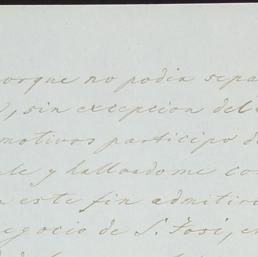 porque no podia sepa
, sin excepcion del
motivos participo d
le y hallandome co
este fin admitir
egocio de S. José, e